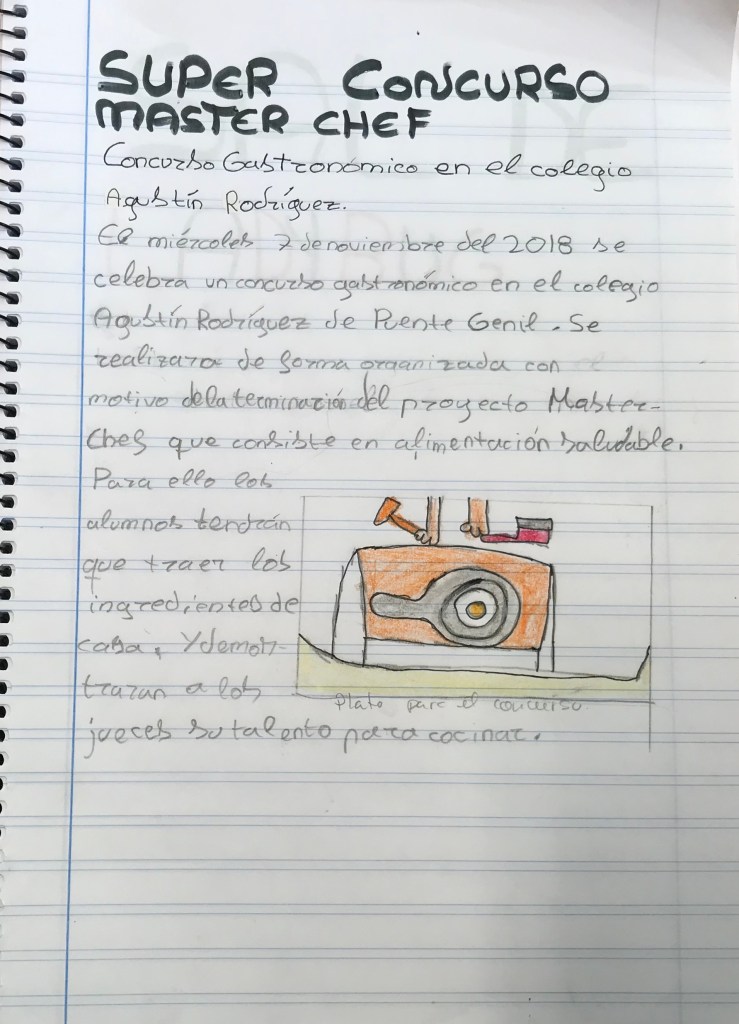 SUPER CONCURSO
MASTER CHEF
Concurso Gastronómico en el colegio
Agustín Rodríguez.
El miércoles 7 de noviembre del 2018 se
celebra un concurso gastronómico en el colegio
Agustín Rodríguez de Puente Genil. Se
realizara de forma organizada con
motivo de la terminación del proyecto Master-
Chef que consiste en alimentación saludable.
Para ello los
alumnos tendrán
que traer los
ingredientes de
casa, Y demos-
traran a los
jueces su talento para cocinar.
Plato para el concurso